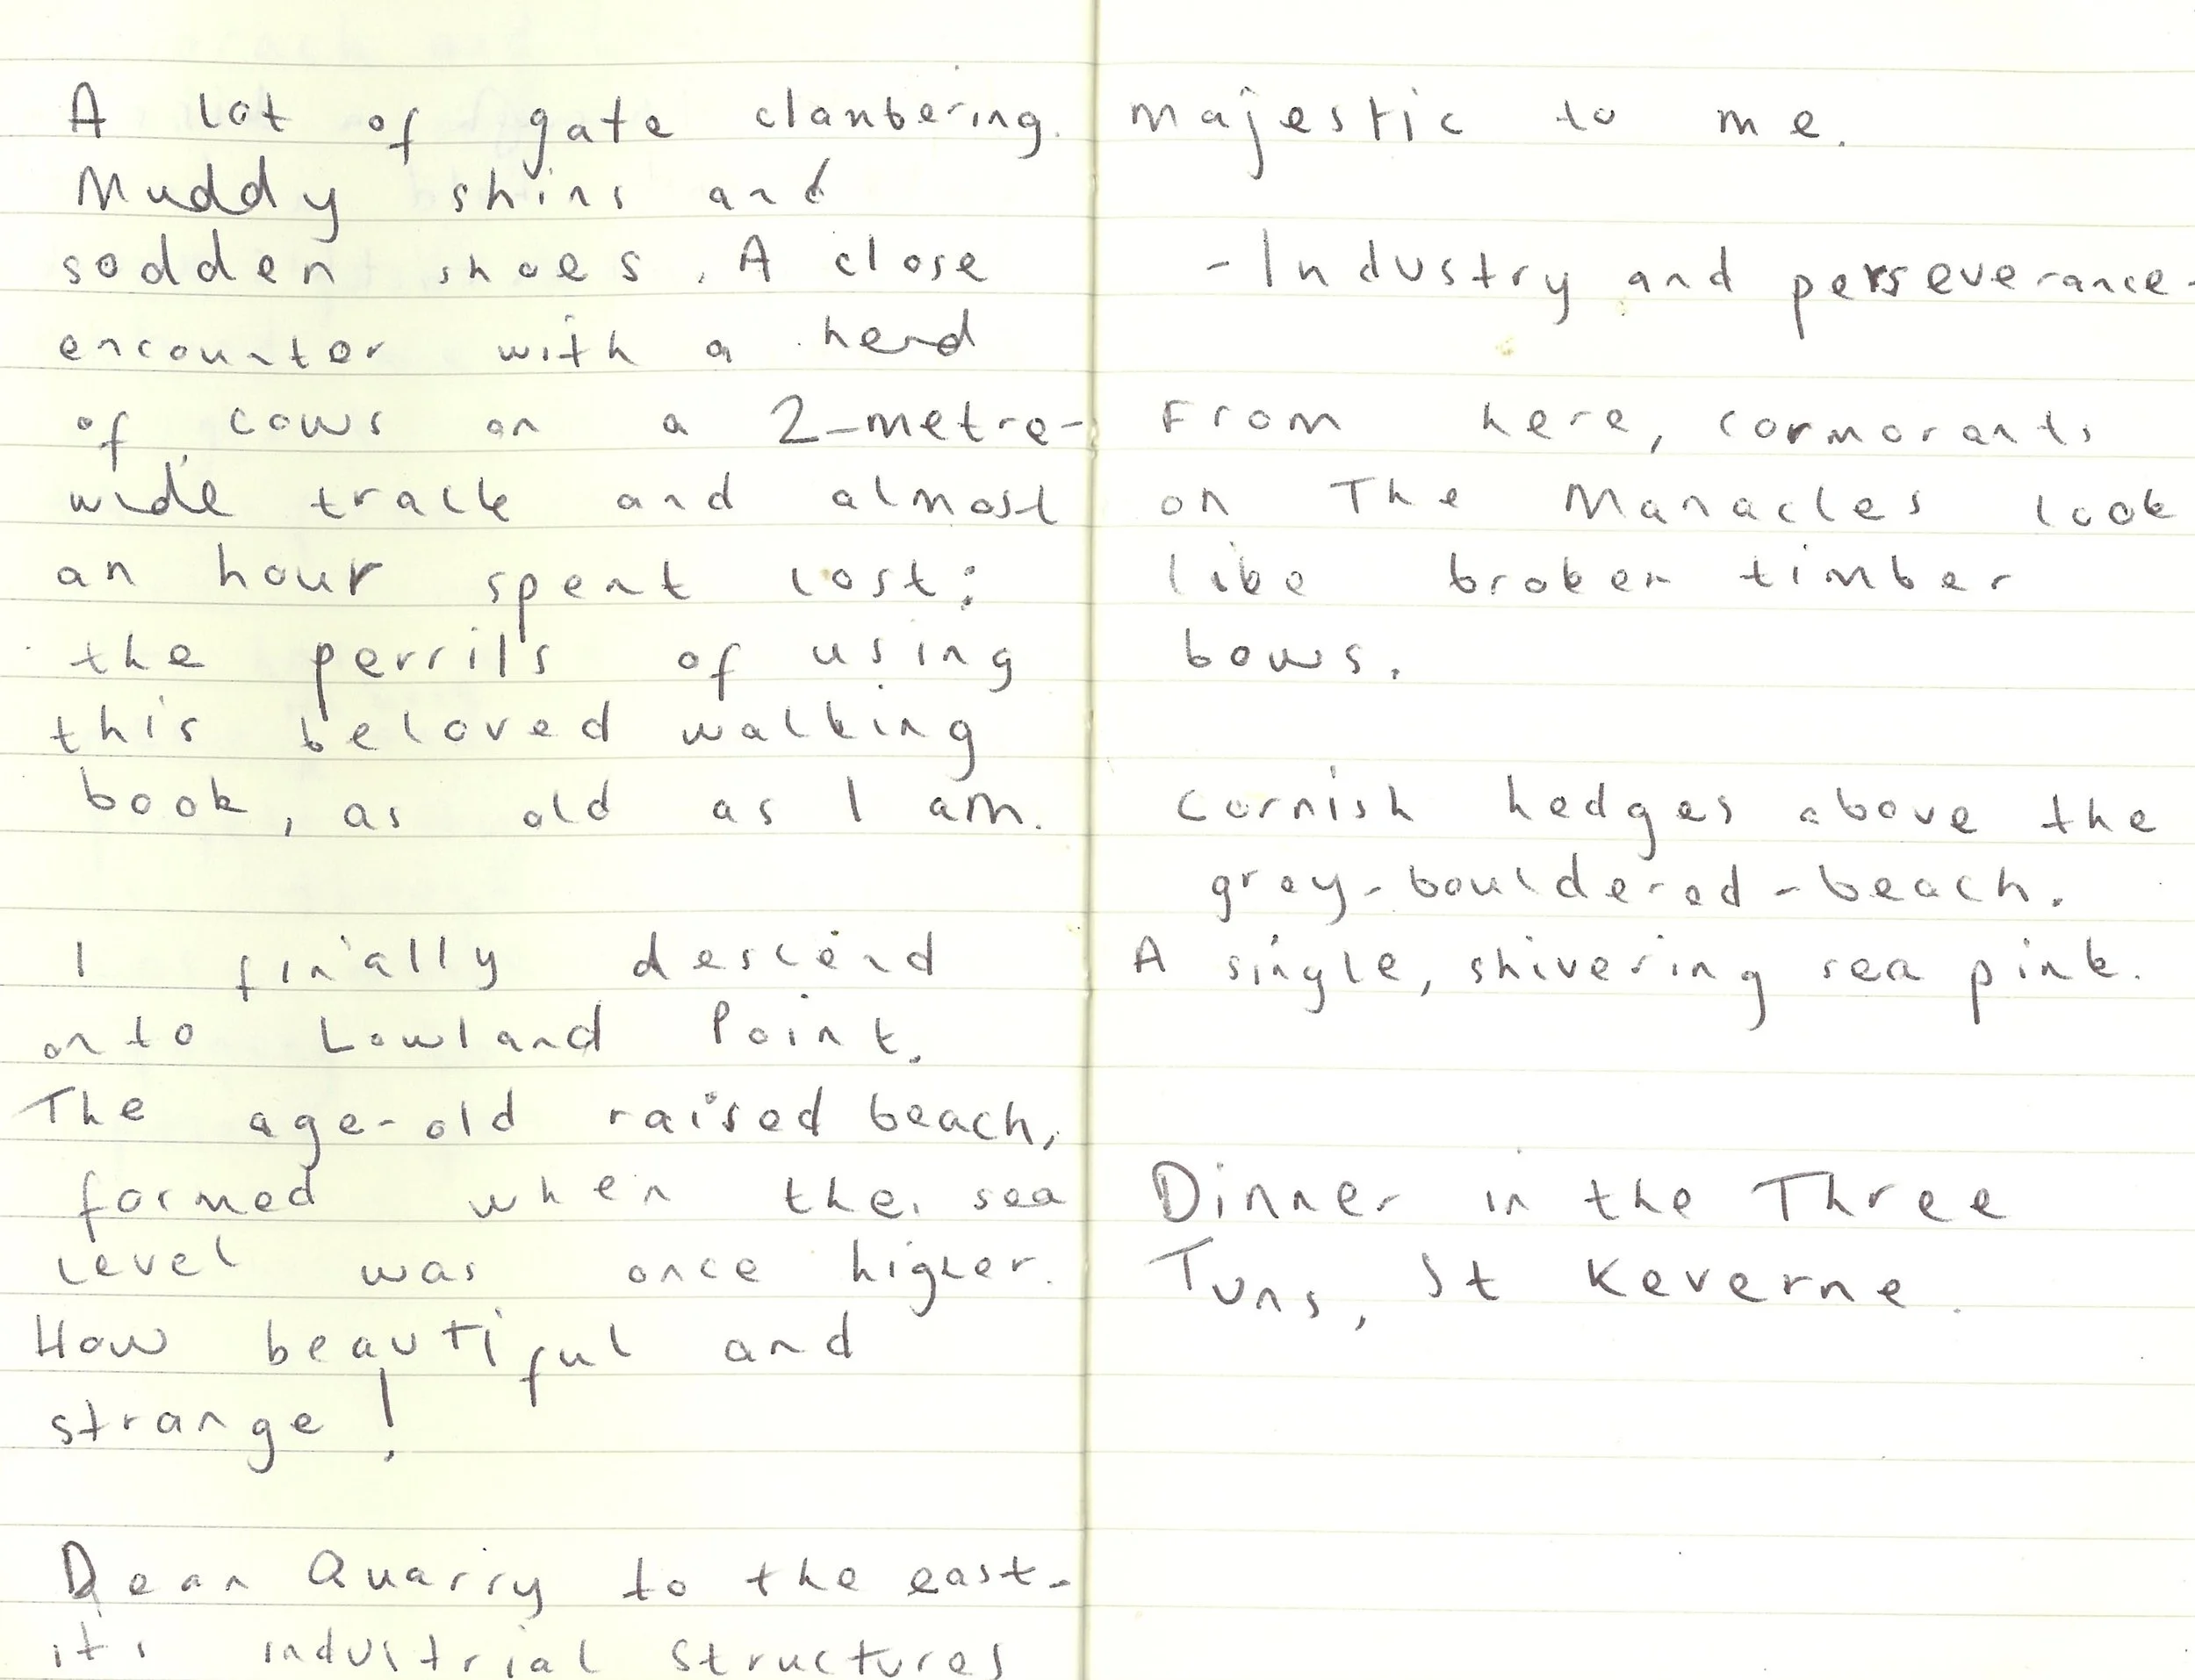 A lot of gate clambering.
Muddy shins and
sodden shoes. A close
encounter with a herd
of cows on a 2-metre-
wide track and almost
an hour spent lost:
the perrils of using
this beloved walking
book, as old as I am.
I finally descend
onto Lowland Point.
The age-old raised beach,
formed when the sea
level was once higher.
How beautiful and
strange!
Dean Quarry to the east-
its industrial structures
majestic to me.
-Industry and perseverance-
From here, cormorants
on The Manacles look
like broken timber
bows.
Cornish hedges above the
grey-bouldered-beach.
A single, shivering sea pink.
Dinner in the Three
Tuns, St Keverne.